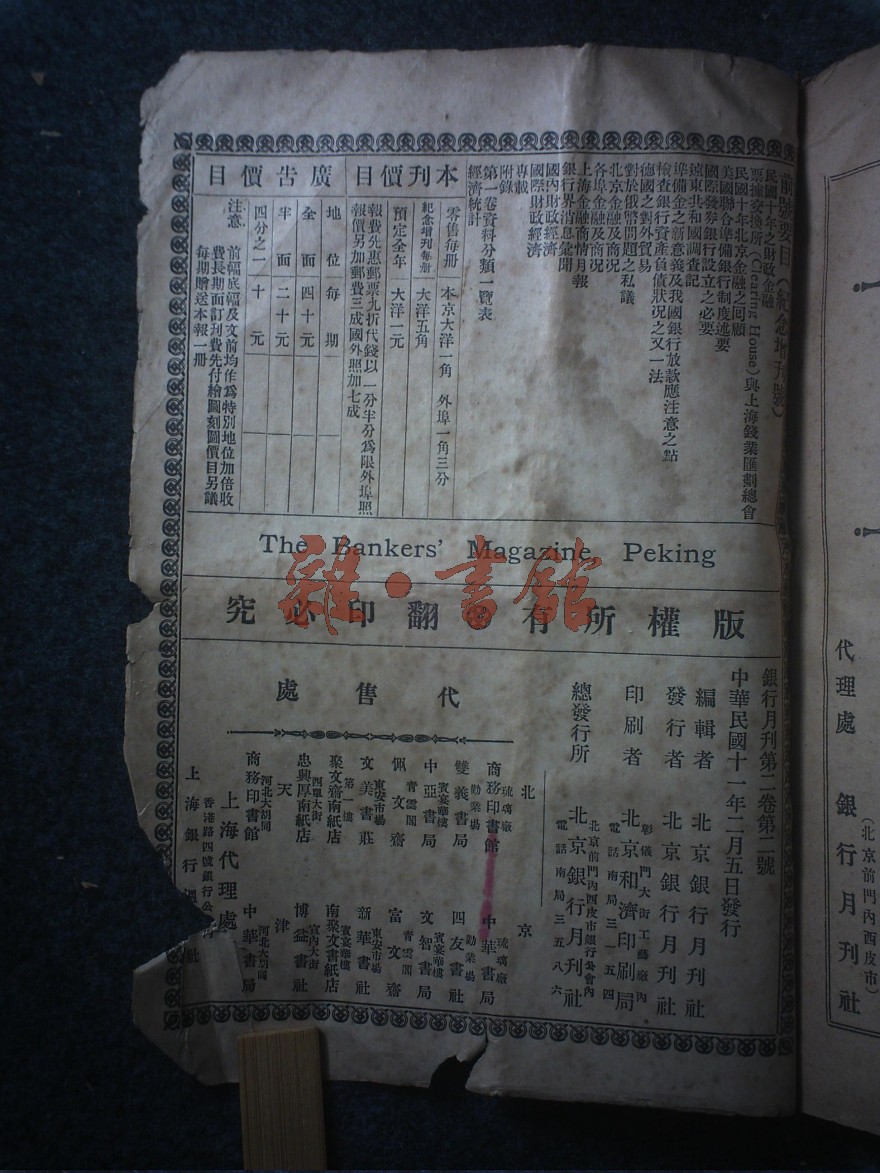 前號要目（紀念增刊號）
民國十年之財政金融
票據交換所（Clearing House）與上海錢業匯劃總會
民國十年北京金融之回顧
美國聯合準備銀行制度述要
國際發券銀行設立之必要
遠東共和國調查記
準備金之新意義及我國銀行放款應注意之點
檢查銀行資產負債狀況之又一法
德國之對外貿易
對於俄幣問題之私議
北京金融及商況
各埠金融及商況
上海金融商情月報
銀行界消息彙聞
國內財政經濟
國際財政經濟
專載
附錄
第一卷資料分類一覽表
經濟統計
本刊價目
零售每冊 本京大洋一角 外埠一角三分
紀念增刊每冊 大洋五角
預定全年 大洋一元
報費先惠郵票九折代錢以一分半分為限外埠照
報價另加郵費三成國外照加七成
廣告價目
地位每期
全面四十元
半面二十元
四分之一十元
注意 前幅底幅及文前均作為特別地位加倍收
費長期面訂刊費先付繪圖刻圖價目另議
每期贈送本報一冊
The Bankers' Magazine, Peking
版權所有 翻印必究
銀行月刊第二卷第二號
中華民國十一年二月五日發行
編輯者 北京銀行月刊社
發行者 北京銀行月刊社
印刷者 彰儀門大街工藝廠內
北京和濟印刷局
電話南局三一五四
總發行所 北京前門內西皮市銀行公會內
北京銀行月刊社
電話南局三五八六
代售處
北京
琉璃廠 商務印書館 琉璃廠 中華書局
勸業場 雙義書局 勸業場 四友書社
賓宴華樓 中亞書局 賓宴華樓 文智書局
青雲閣 佩文齋 青雲閣 富文齋
東安市場 文美書莊 東安市場 新華書社
第一樓 聚文齋南紙店 賓宴華樓 南聚文書紙店
四單大街 忠興厚南紙店 宣內大街 博益書社
天津
河北大胡同 商務印書館 河北大胡同 中華書局
上海代理處
香港路四號銀行公
上海銀行週 社
雜·書館
代理處 銀行月刊社
（北京前門內西皮市）